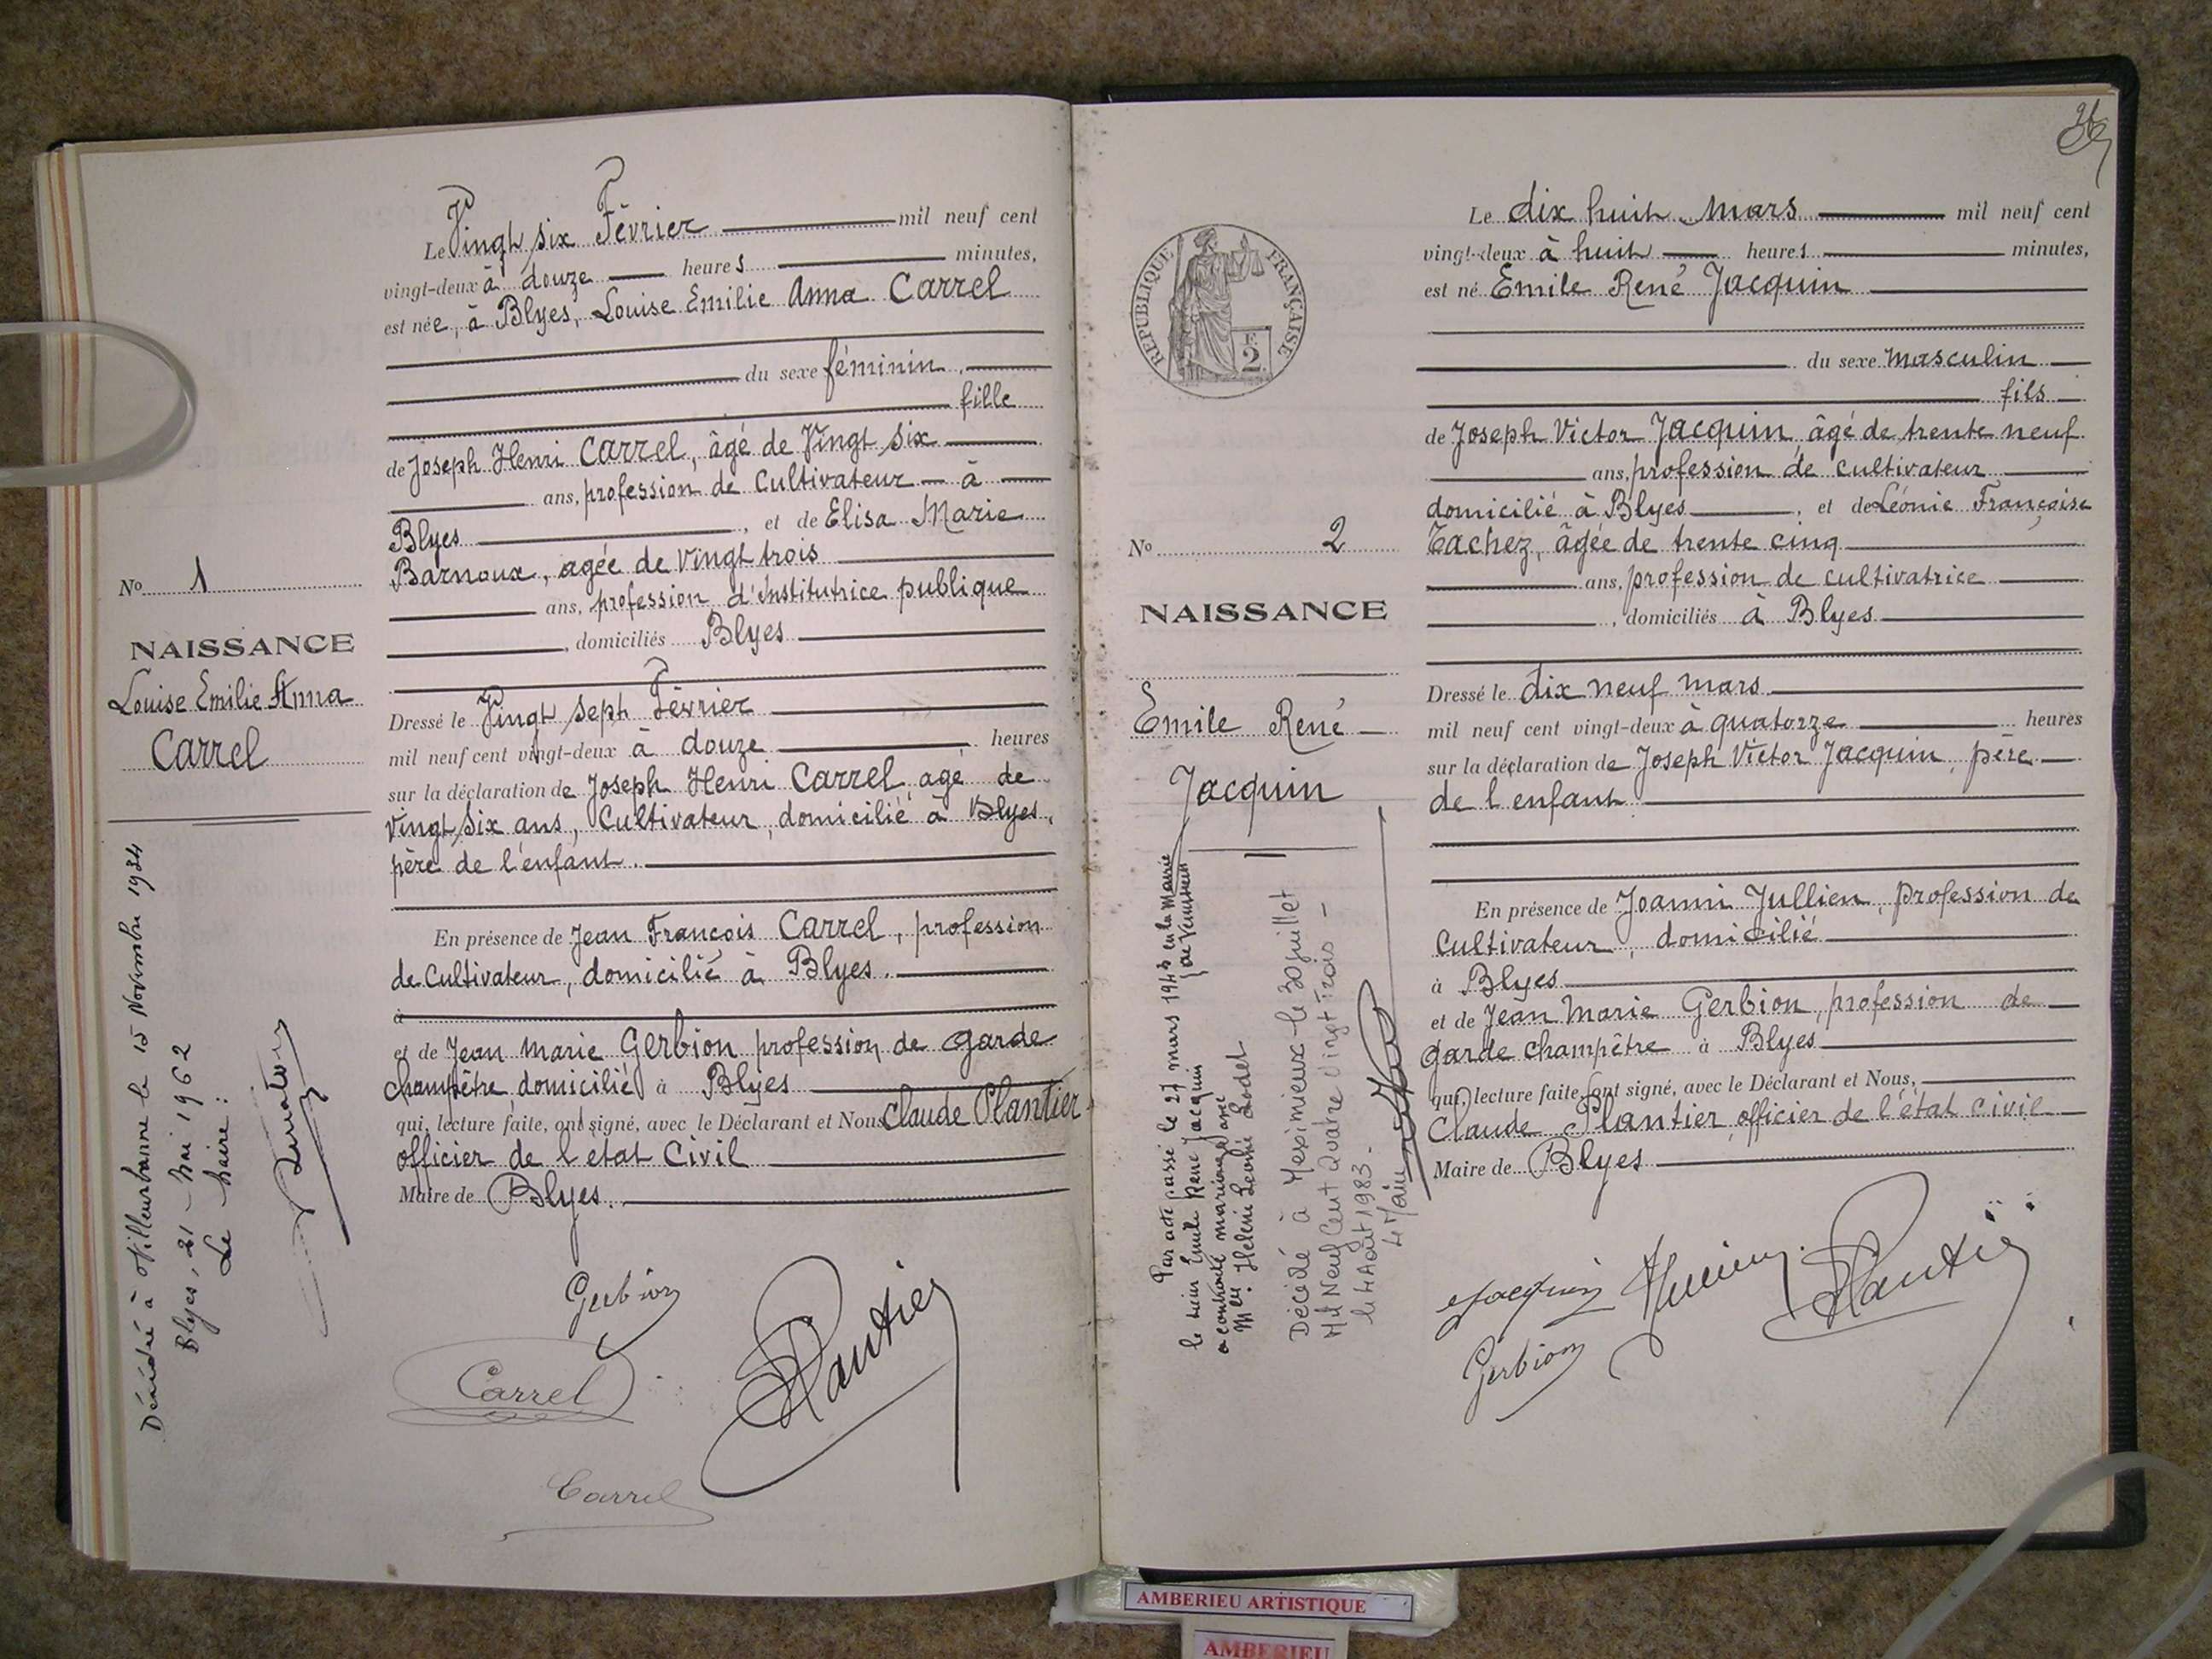 Le Vingt six Février mil neuf cent
vingt-deux à douze heures minutes,
est née, à Blyes, Louise Emilie Anna Carrel
du sexe féminin,
fille
de Joseph Henri Carrel, âgé de Vingt six
ans, profession de Cultivateur à
Blyes, et de Elisa Marie
Barnoux, agée de vingt trois
ans, profession d'institutrice publique
, domiciliés Blyes
Dressé le Vingt sept Février
mil neuf cent vingt-deux à douze heures
sur la déclaration de Joseph Henri Carrel, agé de
vingt six ans, Cultivateur, domicilié à Blyes,
père de l'enfant.
En présence de Jean François Carrel, profession
de Cultivateur, domicilié à Blyes.
à
et de Jean Marie Gerbion profession de garde
champêtre, domicilié à Blyes
qui, lecture faite, ont signé, avec le Déclarant et Nous Claude Plantier
officier de l'état Civil
Maire de Blyes.
Gerbion
Carrel
Plantier
Carrel
No 1
NAISSANCE
Louise Emilie Anna
Carrel
Décédée à Villeurbanne le 15 Novembre 1934
Blyes, 21 Mai 1962
Le Maire :
26
REPUBLIQUE FRANÇAISE
F. 2
No 2
NAISSANCE
Emile René
Jacquin
Par acte passé le 27 mars 1943 en la Mairie
le sieur Emile René Jacquin
a contracté mariage avec
Mlle Hélène Leonie
Décédé à Meximieux le 30 juillet
Mil Neuf Cent Quatre Vingt Trois -
le 4 Août 1983 -
Le Maire
Le dix huit Mars mil neuf cent
vingt-deux à huit heures minutes,
est né Emile René Jacquin
du sexe masculin
fils
de Joseph Victor Jacquin âgé de trente neuf
ans, profession de cultivateur
domicilié à Blyes, et de Léonie Françoise
Tachez, âgée de trente cinq
ans, profession de cultivatrice
, domiciliés à Blyes
Dressé le dix neuf mars
mil neuf cent vingt-deux à quatorze heures
sur la déclaration de Joseph Victor Jacquin, père
de l'enfant
En présence de Joanni Jullien, profession de
Cultivateur, domicilié
à Blyes
et de Jean Marie Gerbion, profession de
garde champêtre à Blyes
qui, lecture faite, ont signé, avec le Déclarant et Nous,
Claude Plantier officier de l'état civil
Maire de Blyes
Jacquin
Plantier
Gerbion
AMBERIEU ARTISTIQUE
AMBERIEU